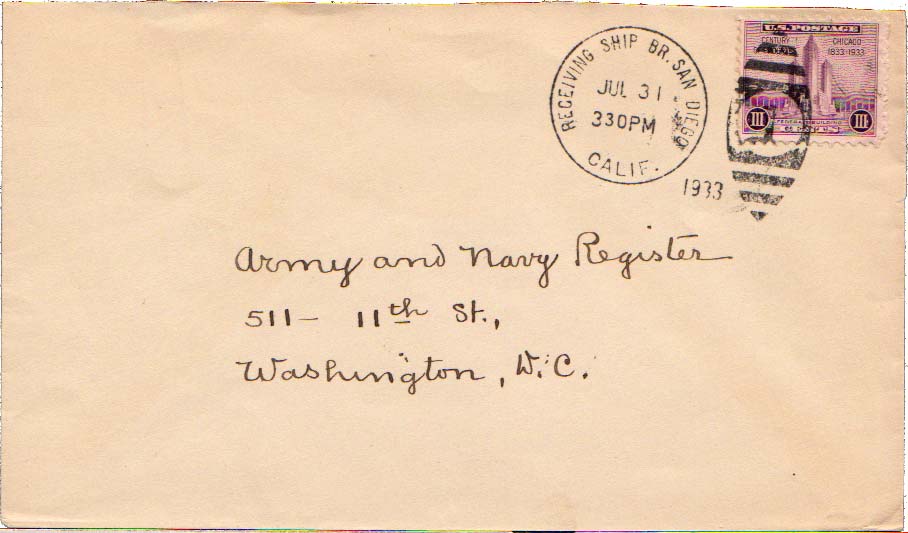 RECEIVING SHIP BR. SAN DIEGO
JUL 31
330PM
CALIF.
1933
U.S. POSTAGE
CENTURY CHICAGO
1833-1933
FEDERAL BUILDING
III CENTS III
Army and Navy Register
511- 11th St.,
Washington, D.C.